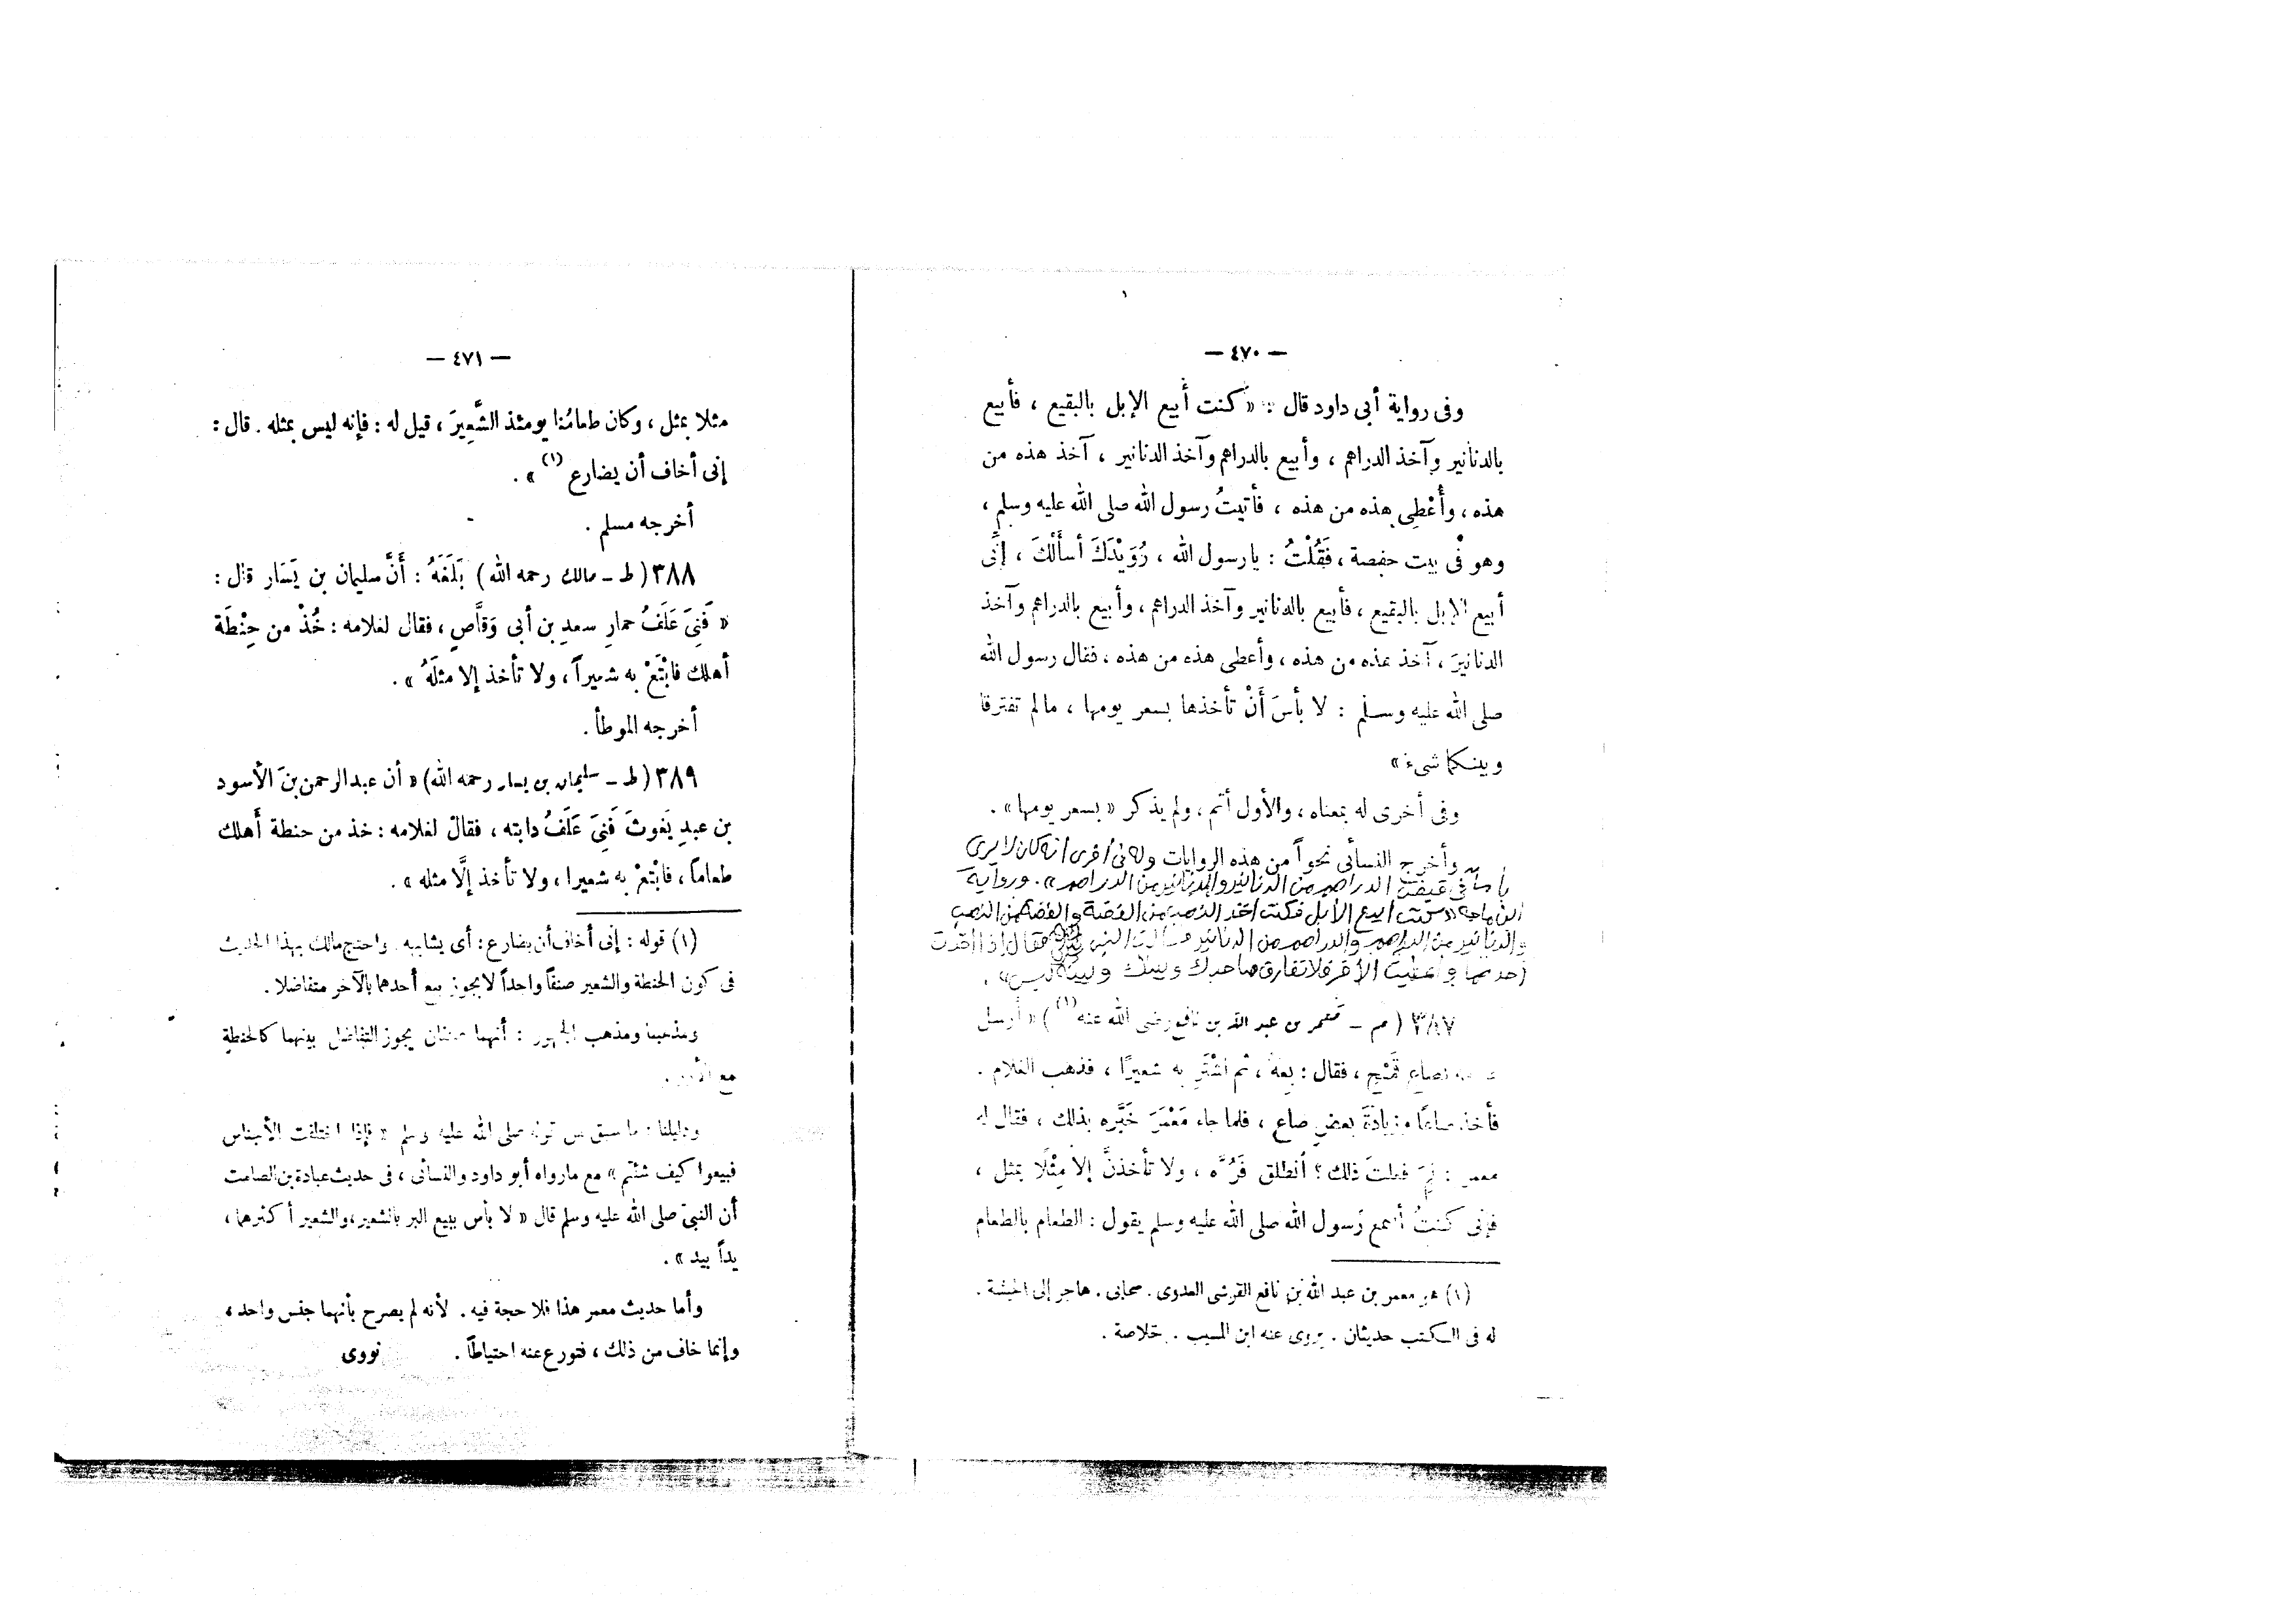 — ٤٧٠ —
وفى رواية أبى داود قال : « كنت أبيع الإبل بالبقيع ، فأبيع
بالدنانير وآخذ الدراهم ، وأبيع بالدراهم وآخذ الدنانير ، آخذ هذه من
هذه ، وأُعْطِى هذه من هذه ، فأتيتُ رسول الله صلى الله عليه وسلم ،
وهو فى بيت حفصة ، فَقُلْتُ : يا رسول الله ، رُوَيْدَكَ أسأَلْكَ ، إنِّى
أبيع الإبل بالبقيع ، فأبيع بالدنانير وآخذ الدراهم ، وأبيع بالدراهم وآخذ
الدنانيرَ ، آخذ هذه من هذه ، وأعطى هذه من هذه ، فقال رسول الله
صلى الله عليه وسلم : لا بأسَ أَنْ تأخذها بسعر يومها ، مالم تفترقا
وبينكما شىء »
وفى أخرى له بمعناه ، والأول أتم ، ولم يذكر « بسعر يومها » .
وأخرج النسائى نحواً من هذه الروايات وله فى أخرى أنه كان لا يرى
بأساً فى قبض الدراهم من الدنانير والدنانير من الدراهم » . ورواية
ابن ماجه « كنت أبيع الإبل فكنت آخذ الذهب من الفضة والفضة من الذهب
والدنانير من الدراهم والدراهم من الدنانير فسألت النبى ﷺ فقال إذا أخذت
أحدهما وأعطيت الآخر فلا تفارق صاحبك وبينك وبينه لبس » .
٣٨٧ ( م – معمر بن عبد الله بن نافع رضى الله عنه (١) ) « أرسل
بصاعِ قَمْحٍ ، فقال : بِعهُ ، ثم اشْتَرِ به شعيرًا ، فذهب الغلام .
فأخذ صاعًا وزيادةَ بعضِ صاع ، فلما جاء مَعْمَرَ خَبَّره بذلك ، فقال له
معمر : لِمَ فعلتَ ذلك ؟ أنطلق فَرُدَّه ، ولا تأخذنَّ إلا مِثْلًا بمثل ،
فإنى كنتُ أسمع رَسول الله صلى الله عليه وسلم يقول : الطعام بالطعام
(١) هو معمر بن عبد الله بن نافع القرشى العدوى . صحابى . هاجر إلى الحبشة .
له فى الكتب حديثان . يروى عنه ابن المسيب . خلاصة .
— ٤٧١ —
مثلا بمثل ، وكان طعامُنا يومئذ الشَّعِيرَ ، قيل له : فإنه ليس بمثله . قال :
إنى أخاف أن يضارع (١) » .
أخرجه مسلم .
٣٨٨ ( ط – مالك رحمه الله ) بَلَغَهُ : أَنَّ سليمان بن يَسَار قال :
« فَنِىَ عَلَفُ حمارِ سعدِ بن أبى وَقَّاصٍ ، فقال لغلامه : خُذْ من حِنْطَة
أهلك فابْتَعْ به شعيراً ، ولا تأخذ إلا مثلَهُ » .
أخرجه الموطأ .
٣٨٩ ( ط – سليمان بن يسار رحمه الله ) « أن عبد الرحمن بنَ الأسود
بن عبدِ يَغوثَ فَنِىَ عَلَفُ دابته ، فقال لغلامه : خذ من حنطة أَهلك
طعاماً ، فابْتَعْ به شعيرا ، ولا تأخذ إلَّا مثله » .
(١) قوله : إنى أخاف أن يضارع : أى يشابه . واحتج مالك بهذا الحديث
فى كون الحنطة والشعير صنفاً واحداً لا يجوز بيع أحدهما بالآخر متفاضلا .
ومذهبنا ومذهب الجمهور : أنهما صنفان يجوز التفاضل بينهما كالحنطة
مع الأرز .
ودليلنا : ما سبق من قوله صلى الله عليه وسلم « فإذا اختلفت الأجناس
فبيعوا كيف شئتم » مع مارواه أبو داود والنسائى ، فى حديث عبادة بن الصامت
أن النبى صلى الله عليه وسلم قال « لا بأس ببيع البر بالشعير ، والشعير أكثرهما ،
يداً بيد » .
وأما حديث معمر هذا فلا حجة فيه . لأنه لم يصرح بأنهما جنس واحد ،
وإنما خاف من ذلك ، فتورع عنه احتياطاً . نووى